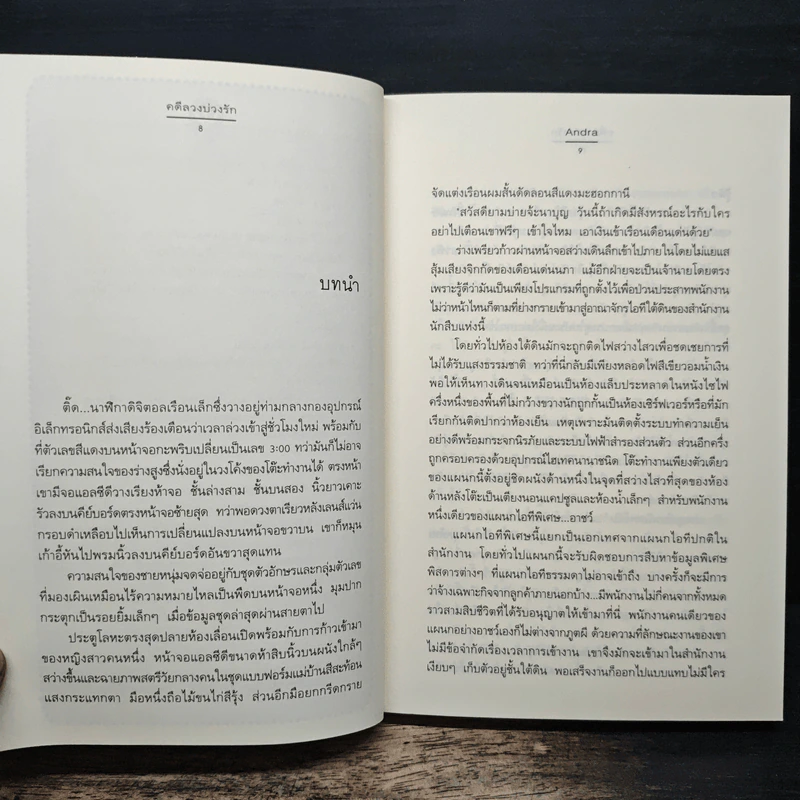 คดีลวงบ่วงรัก
8
บทนำ
ติ๊ด...นาฬิกาดิจิตอลเรือนเล็กซึ่งวางอยู่ท่ามกลางกองอุปกรณ์
อิเล็กทรอนิกส์ส่งเสียงร้องเตือนว่าเวลาล่วงเข้าสู่ชั่วโมงใหม่ พร้อมกับ
ที่ตัวเลขสีแดงบนหน้าจอกะพริบเปลี่ยนเป็นเลข 3:00 ทว่ามันก็ไม่อาจ
เรียกความสนใจของร่างสูงซึ่งนั่งอยู่ในวงโค้งของโต๊ะทำงานได้ ตรงหน้า
เขามีจอแอลซีดีวางเรียงห้าจอ ชั้นล่างสาม ชั้นบนสอง นิ้วยาวเคาะ
รัวลงบนคีย์บอร์ดตรงหน้าจอซ้ายสุด ทว่าพอดวงตาเรียวหลังเลนส์แว่น
กรอบดำเหลือบไปเห็นการเปลี่ยนแปลงบนหน้าจอขวาบน เขาก็หมุน
เก้าอี้หันไปพรมนิ้วลงบนคีย์บอร์ดอันขวาสุดแทน
ความสนใจของชายหนุ่มจดจ่ออยู่กับชุดตัวอักษรและกลุ่มตัวเลข
ที่มองเผินเหมือนไร้ความหมายไหลเป็นพืดบนหน้าจอหนึ่ง มุมปาก
กระตุกเป็นรอยยิ้มเล็กๆ เมื่อข้อมูลชุดล่าสุดผ่านสายตาไป
ประตูโลหะตรงสุดปลายห้องเลื่อนเปิดพร้อมกับการก้าวเข้ามา
ของหญิงสาวคนหนึ่ง หน้าจอแอลซีดีขนาดห้าสิบนิ้วบนผนังใกล้ๆ
สว่างขึ้นและฉายภาพสตรีวัยกลางคนในชุดแบบฟอร์มแม่บ้านสีสะท้อน
แสงกระแทกตา มือหนึ่งถือไม้ขนไก่สีรุ้ง ส่วนอีกมือยกกรีดกราย
Andra
9
จัดแต่งเรือนผมสั้นดัดลอนสีแดงมะฮอกกานี
"สวัสดียามบ่ายจ้ะนาบุญ วันนี้ถ้าเกิดมีสังหรณ์อะไรกับใคร
อย่าไปเตือนเขาฟรีๆ เข้าใจไหม เอาเงินเข้าเรือนเดือนเด่นด้วย"
ร่างเพรียวก้าวผ่านหน้าจอสว่างเดินลึกเข้าไปภายในโดยไม่แยแส
สุ้มเสียงจิกกัดของเดือนเด่นนภา แม้อีกฝ่ายจะเป็นเจ้านายโดยตรง
เพราะรู้ดีว่ามันเป็นเพียงโปรแกรมที่ถูกตั้งไว้เพื่อป่วนประสาทพนักงาน
ไม่ว่าหน้าไหนก็ตามที่ย่างกรายเข้ามาสู่อาณาจักรไอทีใต้ดินของสำนักงาน
นักสืบแห่งนี้
โดยทั่วไปห้องใต้ดินมักจะถูกติดไฟสว่างไสวเพื่อชดเชยการที่
ไม่ได้รับแสงธรรมชาติ ทว่าที่นี่กลับมีเพียงหลอดไฟสีเขียวอมน้ำเงิน
พอให้เห็นทางเดินจนเหมือนเป็นห้องแล็บประหลาดในหนังไซไฟ
ครึ่งหนึ่งของพื้นที่ไม่กว้างขวางนักถูกกั้นเป็นห้องเซิร์ฟเวอร์หรือที่มัก
เรียกกันติดปากว่าห้องเย็น เหตุเพราะมันติดตั้งระบบทำความเย็น
อย่างดีพร้อมกระจกนิรภัยและระบบไฟฟ้าสำรองส่วนตัว ส่วนอีกครึ่ง
ถูกครอบครองด้วยอุปกรณ์ไฮเทคนานาชนิด โต๊ะทำงานเพียงตัวเดียว
ของแผนกนี้ตั้งอยู่ชิดผนังด้านหนึ่งในจุดที่สว่างไสวที่สุดของห้อง
ด้านหลังโต๊ะเป็นเตียงนอนแคปซูลและห้องน้ำเล็กๆ สำหรับพนักงาน
หนึ่งเดียวของแผนกไอทีพิเศษ...อาชว์
แผนกไอทีพิเศษนี้แยกเป็นเอกเทศจากแผนกไอทีปกติใน
สำนักงาน โดยทั่วไปแผนกนี้จะรับผิดชอบการสืบหาข้อมูลพิเศษ
พิสดารต่างๆ ที่แผนกไอทีธรรมดาไม่อาจเข้าถึง บางครั้งก็จะมีการ
ว่าจ้างเฉพาะกิจจากลูกค้าภายนอกบ้าง...มีพนักงานไม่กี่คนจากทั้งหมด
ราวสามสิบชีวิตที่ได้รับอนุญาตให้เข้ามาที่นี่ พนักงานคนเดียวของ
แผนกอย่างอาชว์เองก็ไม่ต่างจากภูตผี ด้วยความที่ลักษณะงานของเขา
ไม่มีข้อจำกัดเรื่องเวลาการเข้างาน เขาจึงมักจะเข้ามาในสำนักงาน
เงียบๆ เก็บตัวอยู่ชั้นใต้ดิน พอเสร็จงานก็ออกไปแบบแทบไม่มีใคร